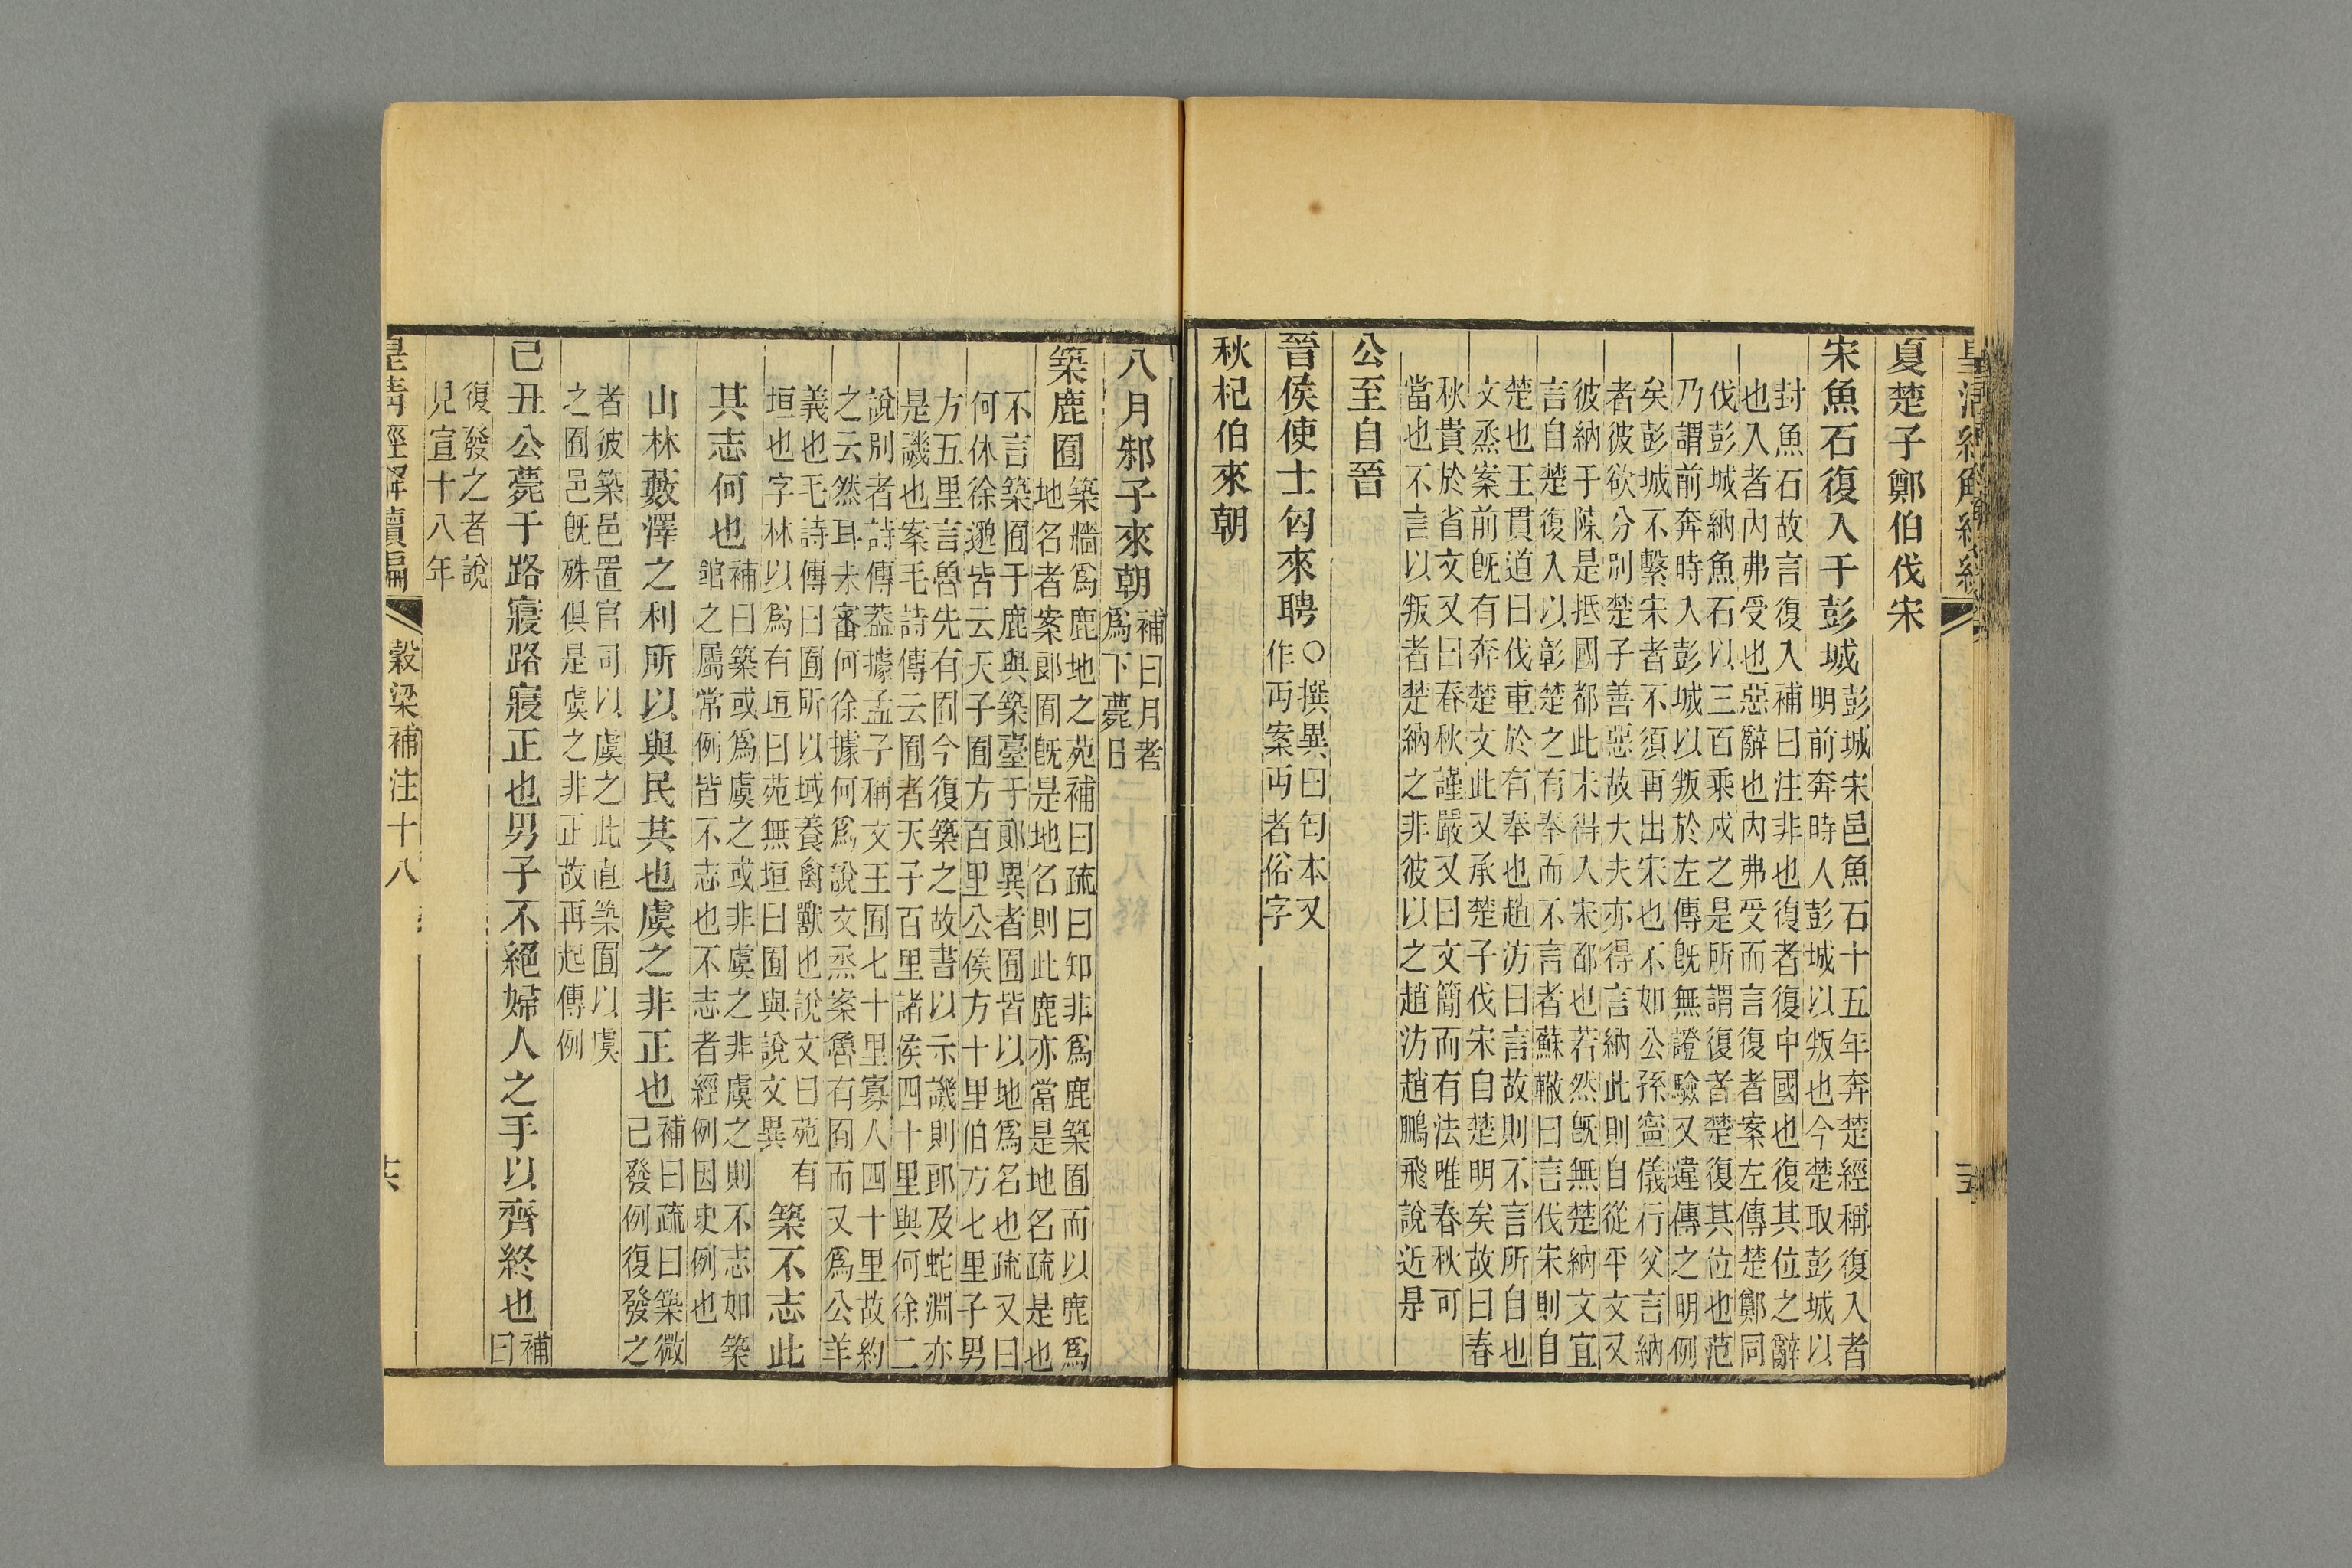 夏楚子鄭伯伐宋
宋魚石復入于彭城
彭城宋邑魚石十五年奔楚經稱復入者
明前奔時人彭城以叛也今楚取彭城以
封魚石故言復入補曰注非也復者復中國也復其位之辭
也入者內弗受也惡辭也內弗受而言復者案左傳楚鄭同
伐彭城納魚石以三百乘戍之是所謂復者楚復其位也范
乃謂前奔時入彭城以叛於左傳旣無證驗又違傳之明例
矣彭城不繫宋者不須再出宋也不如公孫寧儀行父言納
者彼欲分別楚子善惡故大夫亦得言納此則自從平文又
彼納于陳是抵國都此未得入宋都也若然旣無楚納文宜
言自楚復入以彰楚之有奉而不言者蘇轍曰言伐宋則自
楚也王貫道曰伐重於有奉也趙汸曰言故則不言所自也
文烝案前旣有奔楚文此又承楚子伐宋自楚明矣故曰春
秋貴於省文又曰春秋謹嚴又曰文簡而有法唯春秋可
當也不言以叛者楚納之非彼以之趙汸趙鵬飛說近是
公至自晉
晉侯使士匄來聘
○撰異曰匄本又
作丏案丏者俗字
秋杞伯來朝
八月邾子來朝
補曰月者
爲下薨日
築鹿囿
築牆爲鹿地之苑補曰疏曰知非爲鹿築囿而以鹿爲
地名者案郎囿旣是地名則此鹿亦當是地名疏是也
不言築囿于鹿與築臺于郎異者囿皆以地爲名也疏又曰
何休徐邈皆云天子囿方百里公侯方十里伯方七里子男
方五里言魯先有囿今復築之故書以示譏則郎及蛇淵亦
是譏也案毛詩傳云囿者天子百里諸侯四十里與何徐二
說別者詩傳蓋據孟子稱文王囿七十里寡人四十里故約
之云然耳未審何徐據何爲說文烝案魯有囿而又爲公羊
義也毛詩傳曰囿所以域養禽獸也說文曰苑有
垣也字林以爲有垣曰苑無垣曰囿與說文異
築不志此
其志何也
補曰築或爲虞之或非虞之非虞之則不志如築
館之屬常例皆不志也不志者經例因史例也
山林藪澤之利所以與民共也虞之非正也
補曰疏曰築微
已發例復發之
者彼築邑置官司以虞之此直築囿以虞
之囿邑旣殊俱是虞之非正故再起傳例
己丑公薨于路寢路寢正也男子不絕婦人之手以齊終也
補
曰
復發之者說
見宣十八年
皇清經解續編
穀梁補注十八